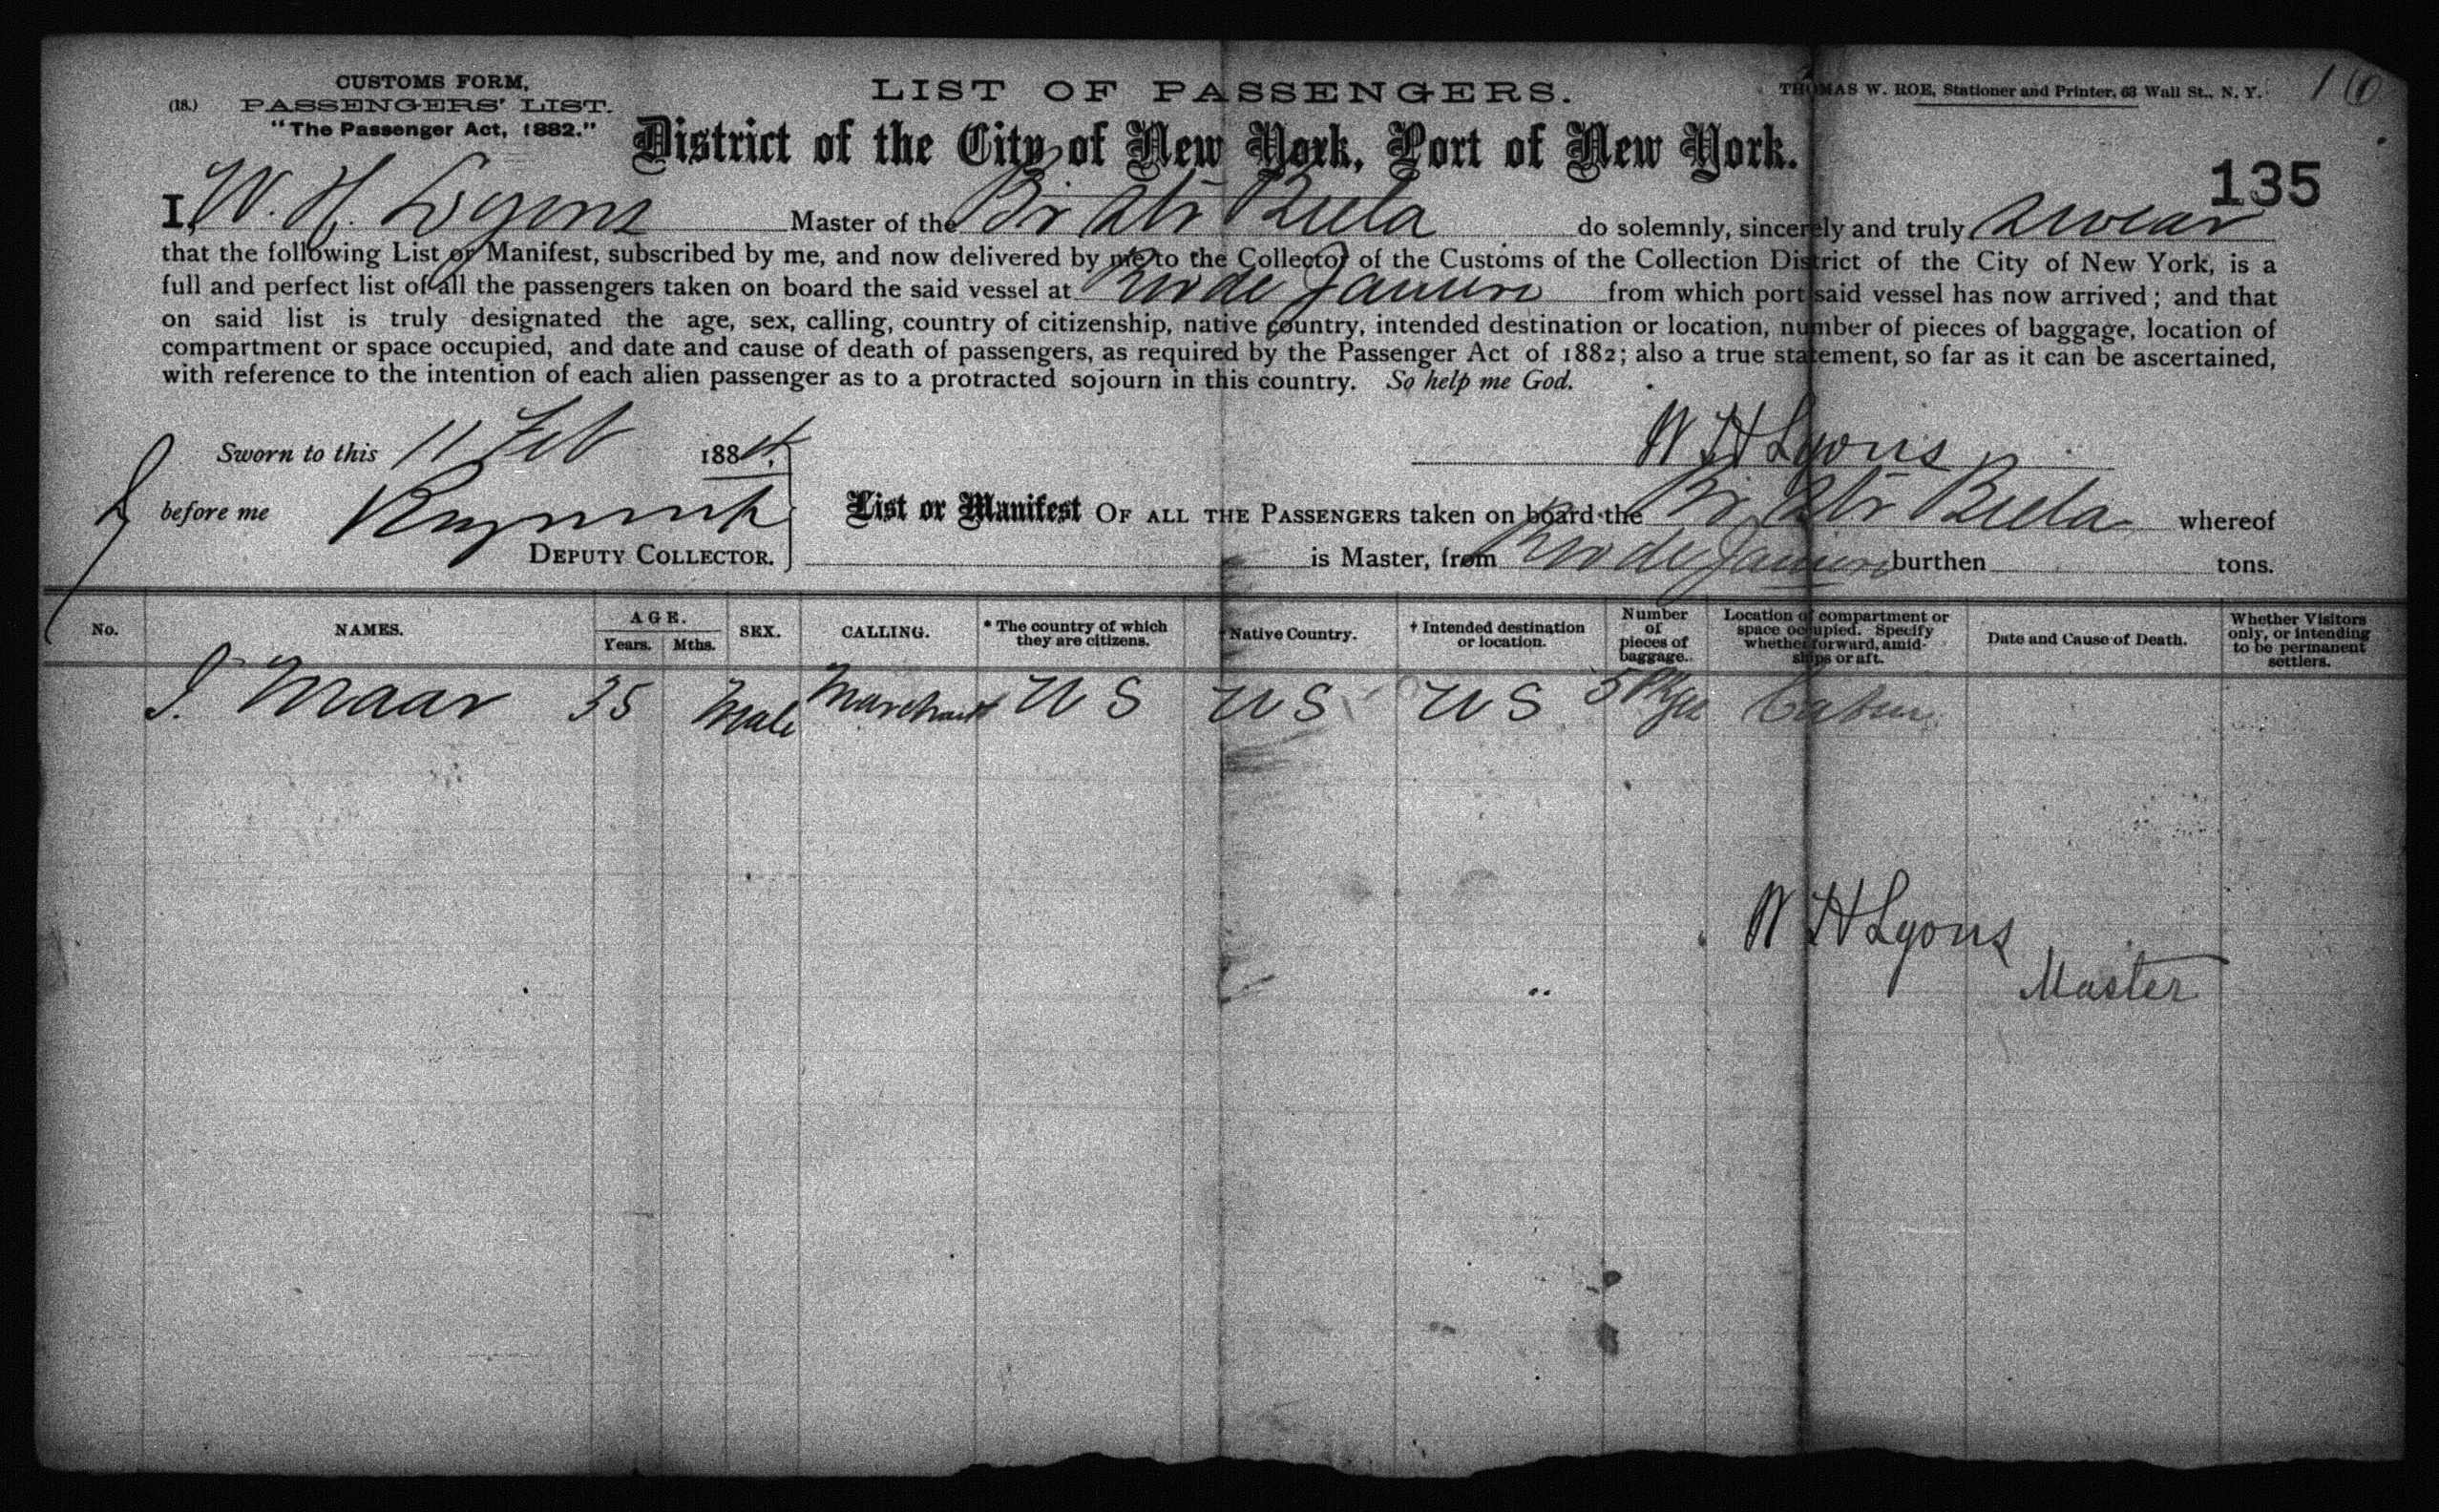 CUSTOMS FORM,
(18.) PASSENGERS' LIST.
"The Passenger Act, 1882."
LIST OF PASSENGERS.
THOMAS W. ROE, Stationer and Printer, 63 Wall St., N. Y.
District of the City of New York, Port of New York.
135
I, W. H. Lyons Master of the Br Str Biela do solemnly, sincerely and truly swear
that the following List or Manifest, subscribed by me, and now delivered by me to the Collector of the Customs of the Collection District of the City of New York, is a
full and perfect list of all the passengers taken on board the said vessel at Rio de Janiero from which port said vessel has now arrived; and that
on said list is truly designated the age, sex, calling, country of citizenship, native country, intended destination or location, number of pieces of baggage, location of
compartment or space occupied, and date and cause of death of passengers, as required by the Passenger Act of 1882; also a true statement, so far as it can be ascertained,
with reference to the intention of each alien passenger as to a protracted sojourn in this country. So help me God.
W H Lyons
Sworn to this 11 Feb 1884.
before me
DEPUTY COLLECTOR.
List or Manifest OF ALL THE PASSENGERS taken on board the Br Str Biela whereof
is Master, from Rio de Janiero burthen tons.
No. NAMES. AGE. Years. Mths. SEX. CALLING. * The country of which they are citizens. † Native Country. † Intended destination or location. Number of pieces of baggage. Location of compartment or space occupied. Specify whether forward, amidships or aft. Date and Cause of Death. Whether Visitors only, or intending to be permanent settlers.
J. Maar 35 Male Marchant U S U S U S 5 Pkges Cabin
W H Lyons
Master